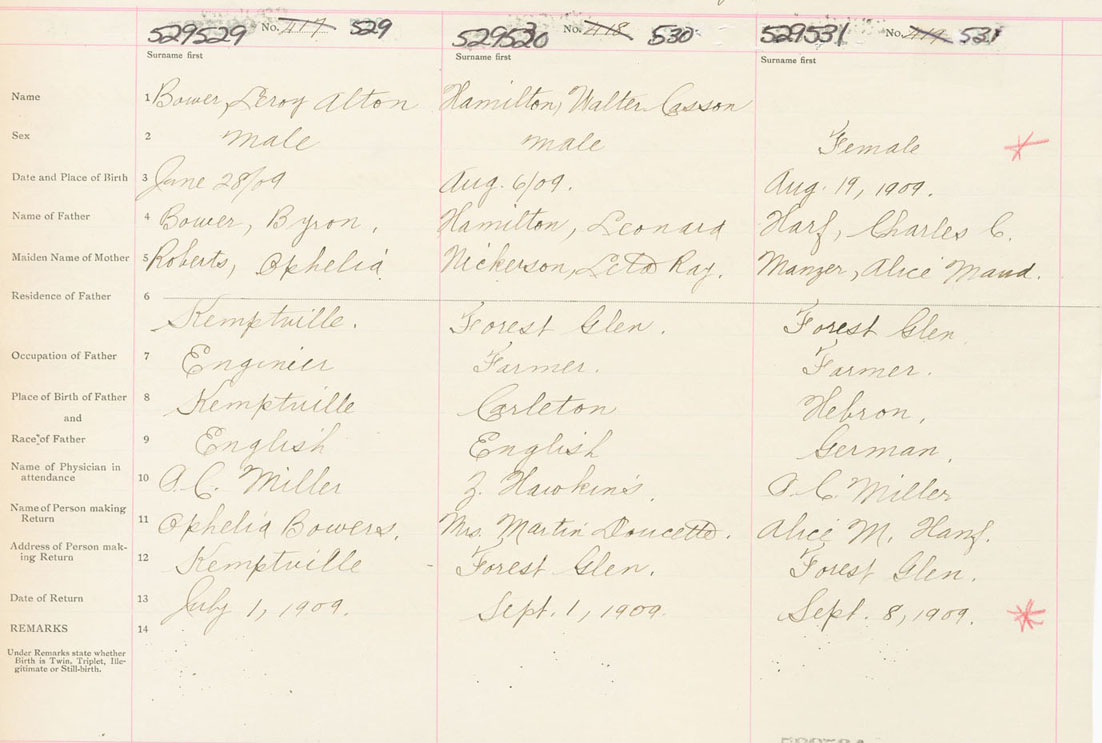 529529 No. 417 529 529520 No. 418 530 529531 No. 419 531
Surname first Surname first Surname first
Name 1 Bower, Leroy Alton Hamilton, Walter Casson
Sex 2 male male Female
Date and Place of Birth 3 June 28/09 Aug. 6/09. Aug. 19, 1909.
Name of Father 4 Bower, Byron, Hamilton, Leonard Harf, Charles C.
Maiden Name of Mother 5 Roberts, Ophelia Nickerson, Ray. Manzer, Alice Maud.
Residence of Father 6
Kemptville. Forest Glen. Forest Glen.
Occupation of Father 7 Enginier Farmer. Farmer.
Place of Birth of Father 8 Kemptville Carleton Hebron,
and
Race of Father 9 English English German,
Name of Physician in
attendance 10 A. C. Miller Z. Hawkins, A. C. Miller
Name of Person making
Return 11 Ophelia Bowers. Mrs. Martin Doucette. Alice M. Harf.
Address of Person mak-
ing Return 12 Kemptville Forest Glen. Forest Glen.
Date of Return 13 July 1, 1909. Sept. 1, 1909. Sept. 8, 1909.
REMARKS 14
Under Remarks state whether
Birth is Twin, Triplet, Ille-
gitimate or Still-birth.